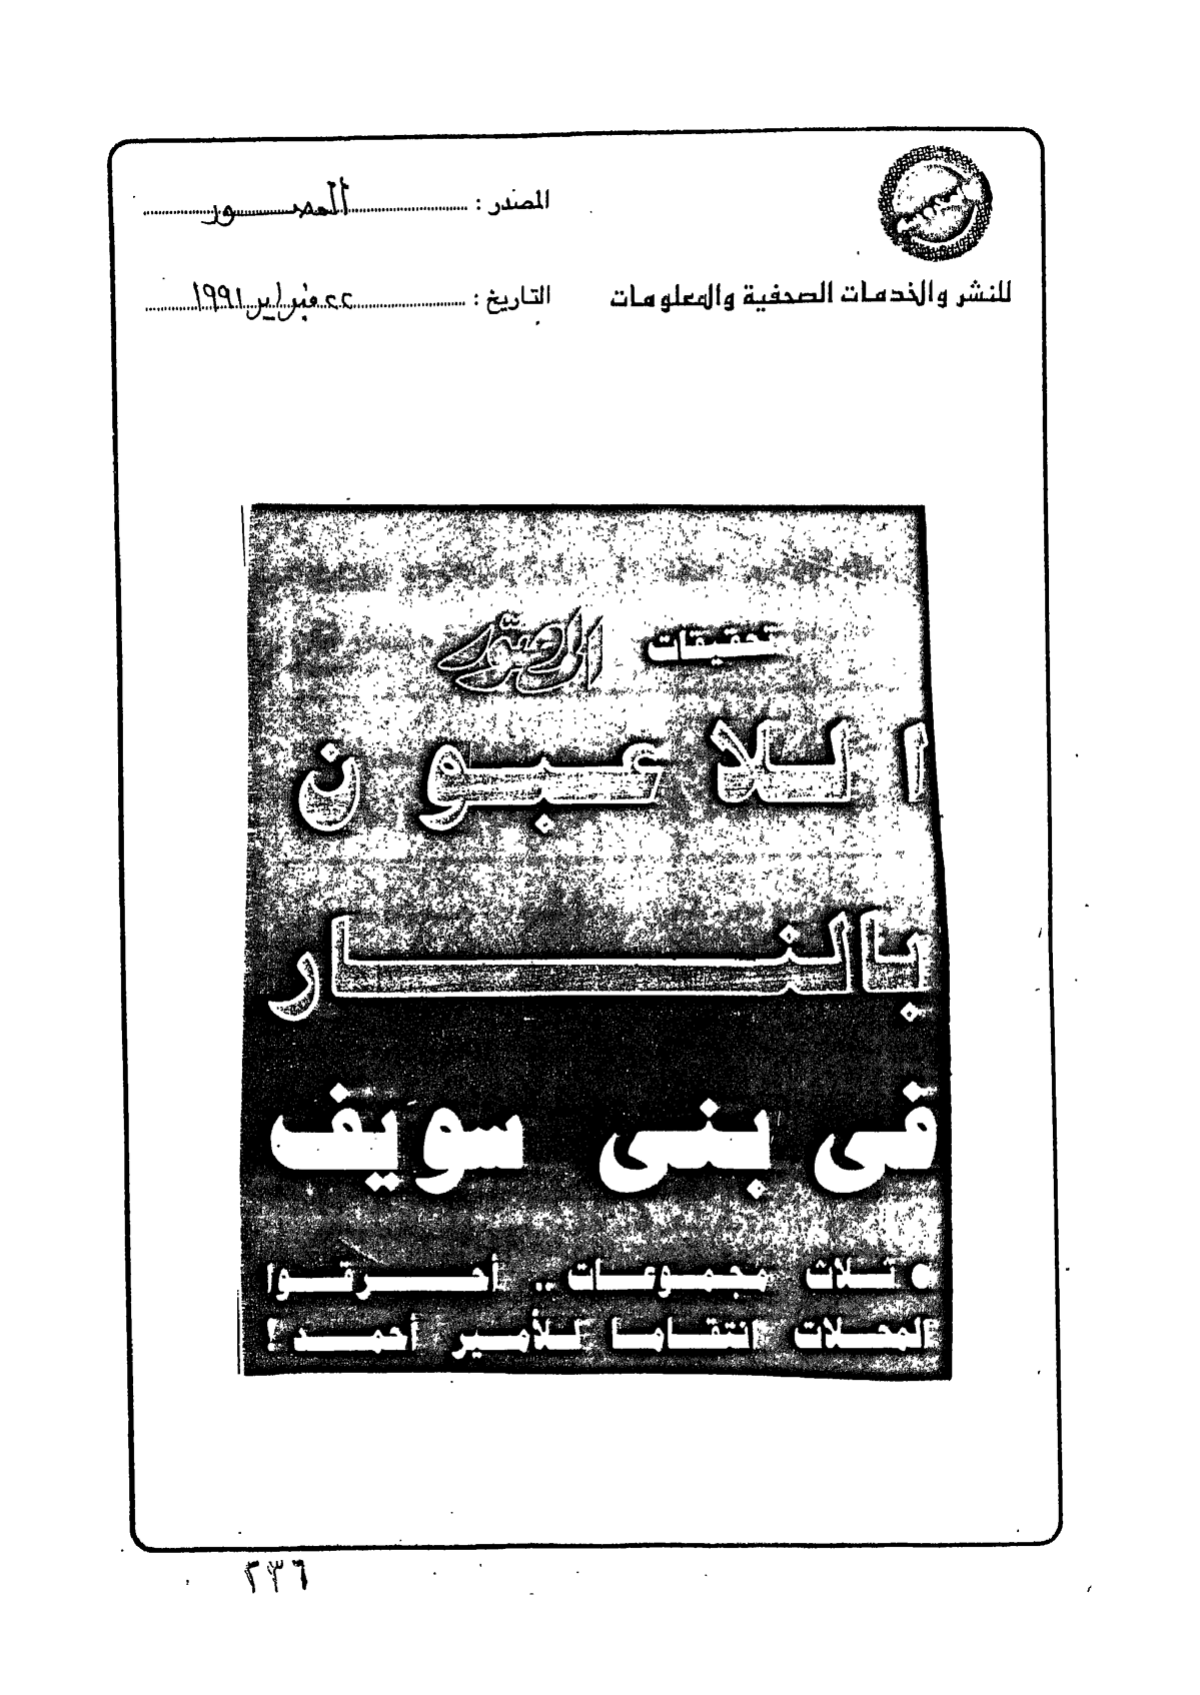 المصدر : المصور
للنشر والخدمات الصحفية والمعلومات
التاريخ : ٢٢ فبراير ١٩٩١
تحقيقات المصور
اللاعبون
بالنار
فى بنى سويف
• ثلاث مجموعات .. أحرقوا
المحلات انتقاما للأمير أحمد !
٢٣٦